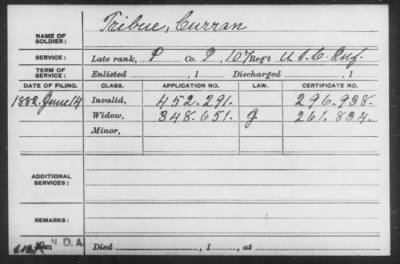 Tribue, Curran
NAME OF SOLDIER:
SERVICE: Late rank, P Co. I, 107 Reg't U.S.C. Inf.
TERM OF SERVICE: Enlisted , 1 Discharged , 1
DATE OF FILING. CLASS. APPLICATION NO. LAW. CERTIFICATE NO.
1882. June 14 Invalid, 452.291. 296.938.
Widow, 348.651. G 261.834.
Minor,
ADDITIONAL SERVICES:
REMARKS:
N.D.A.
Died , 1 , at